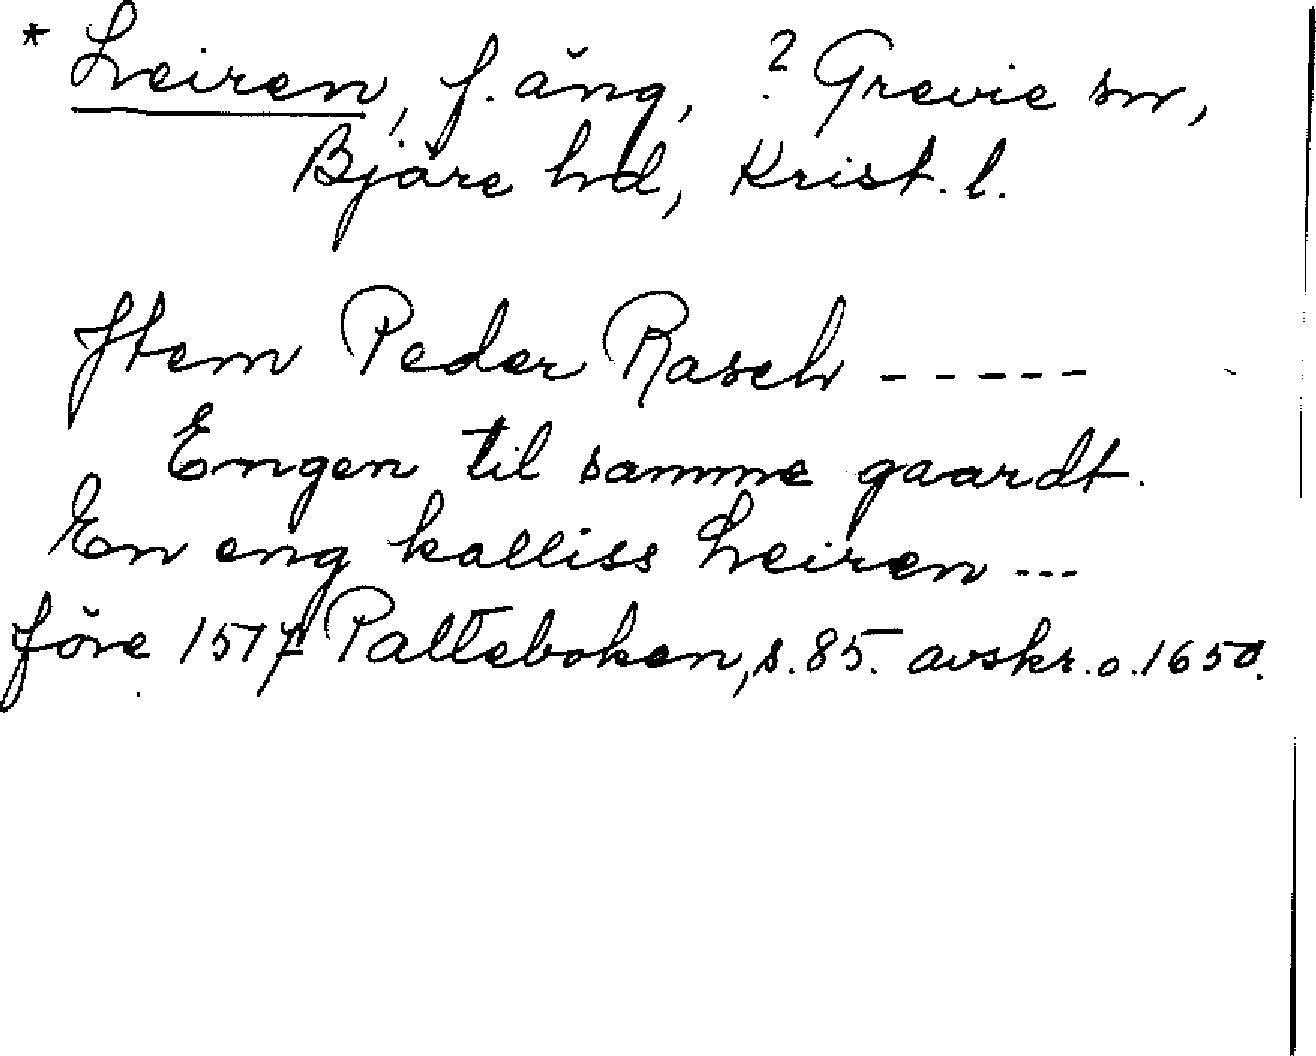 * Leiren, f. äng, ? Grevie sn,
Bjäre hd, Krist. l.
Item Peder Rasch -----
Engen til samme gaardt.
En eng kalliss Leiren ---
före 1517 Palteboken, s. 85. avskr. o. 1650.